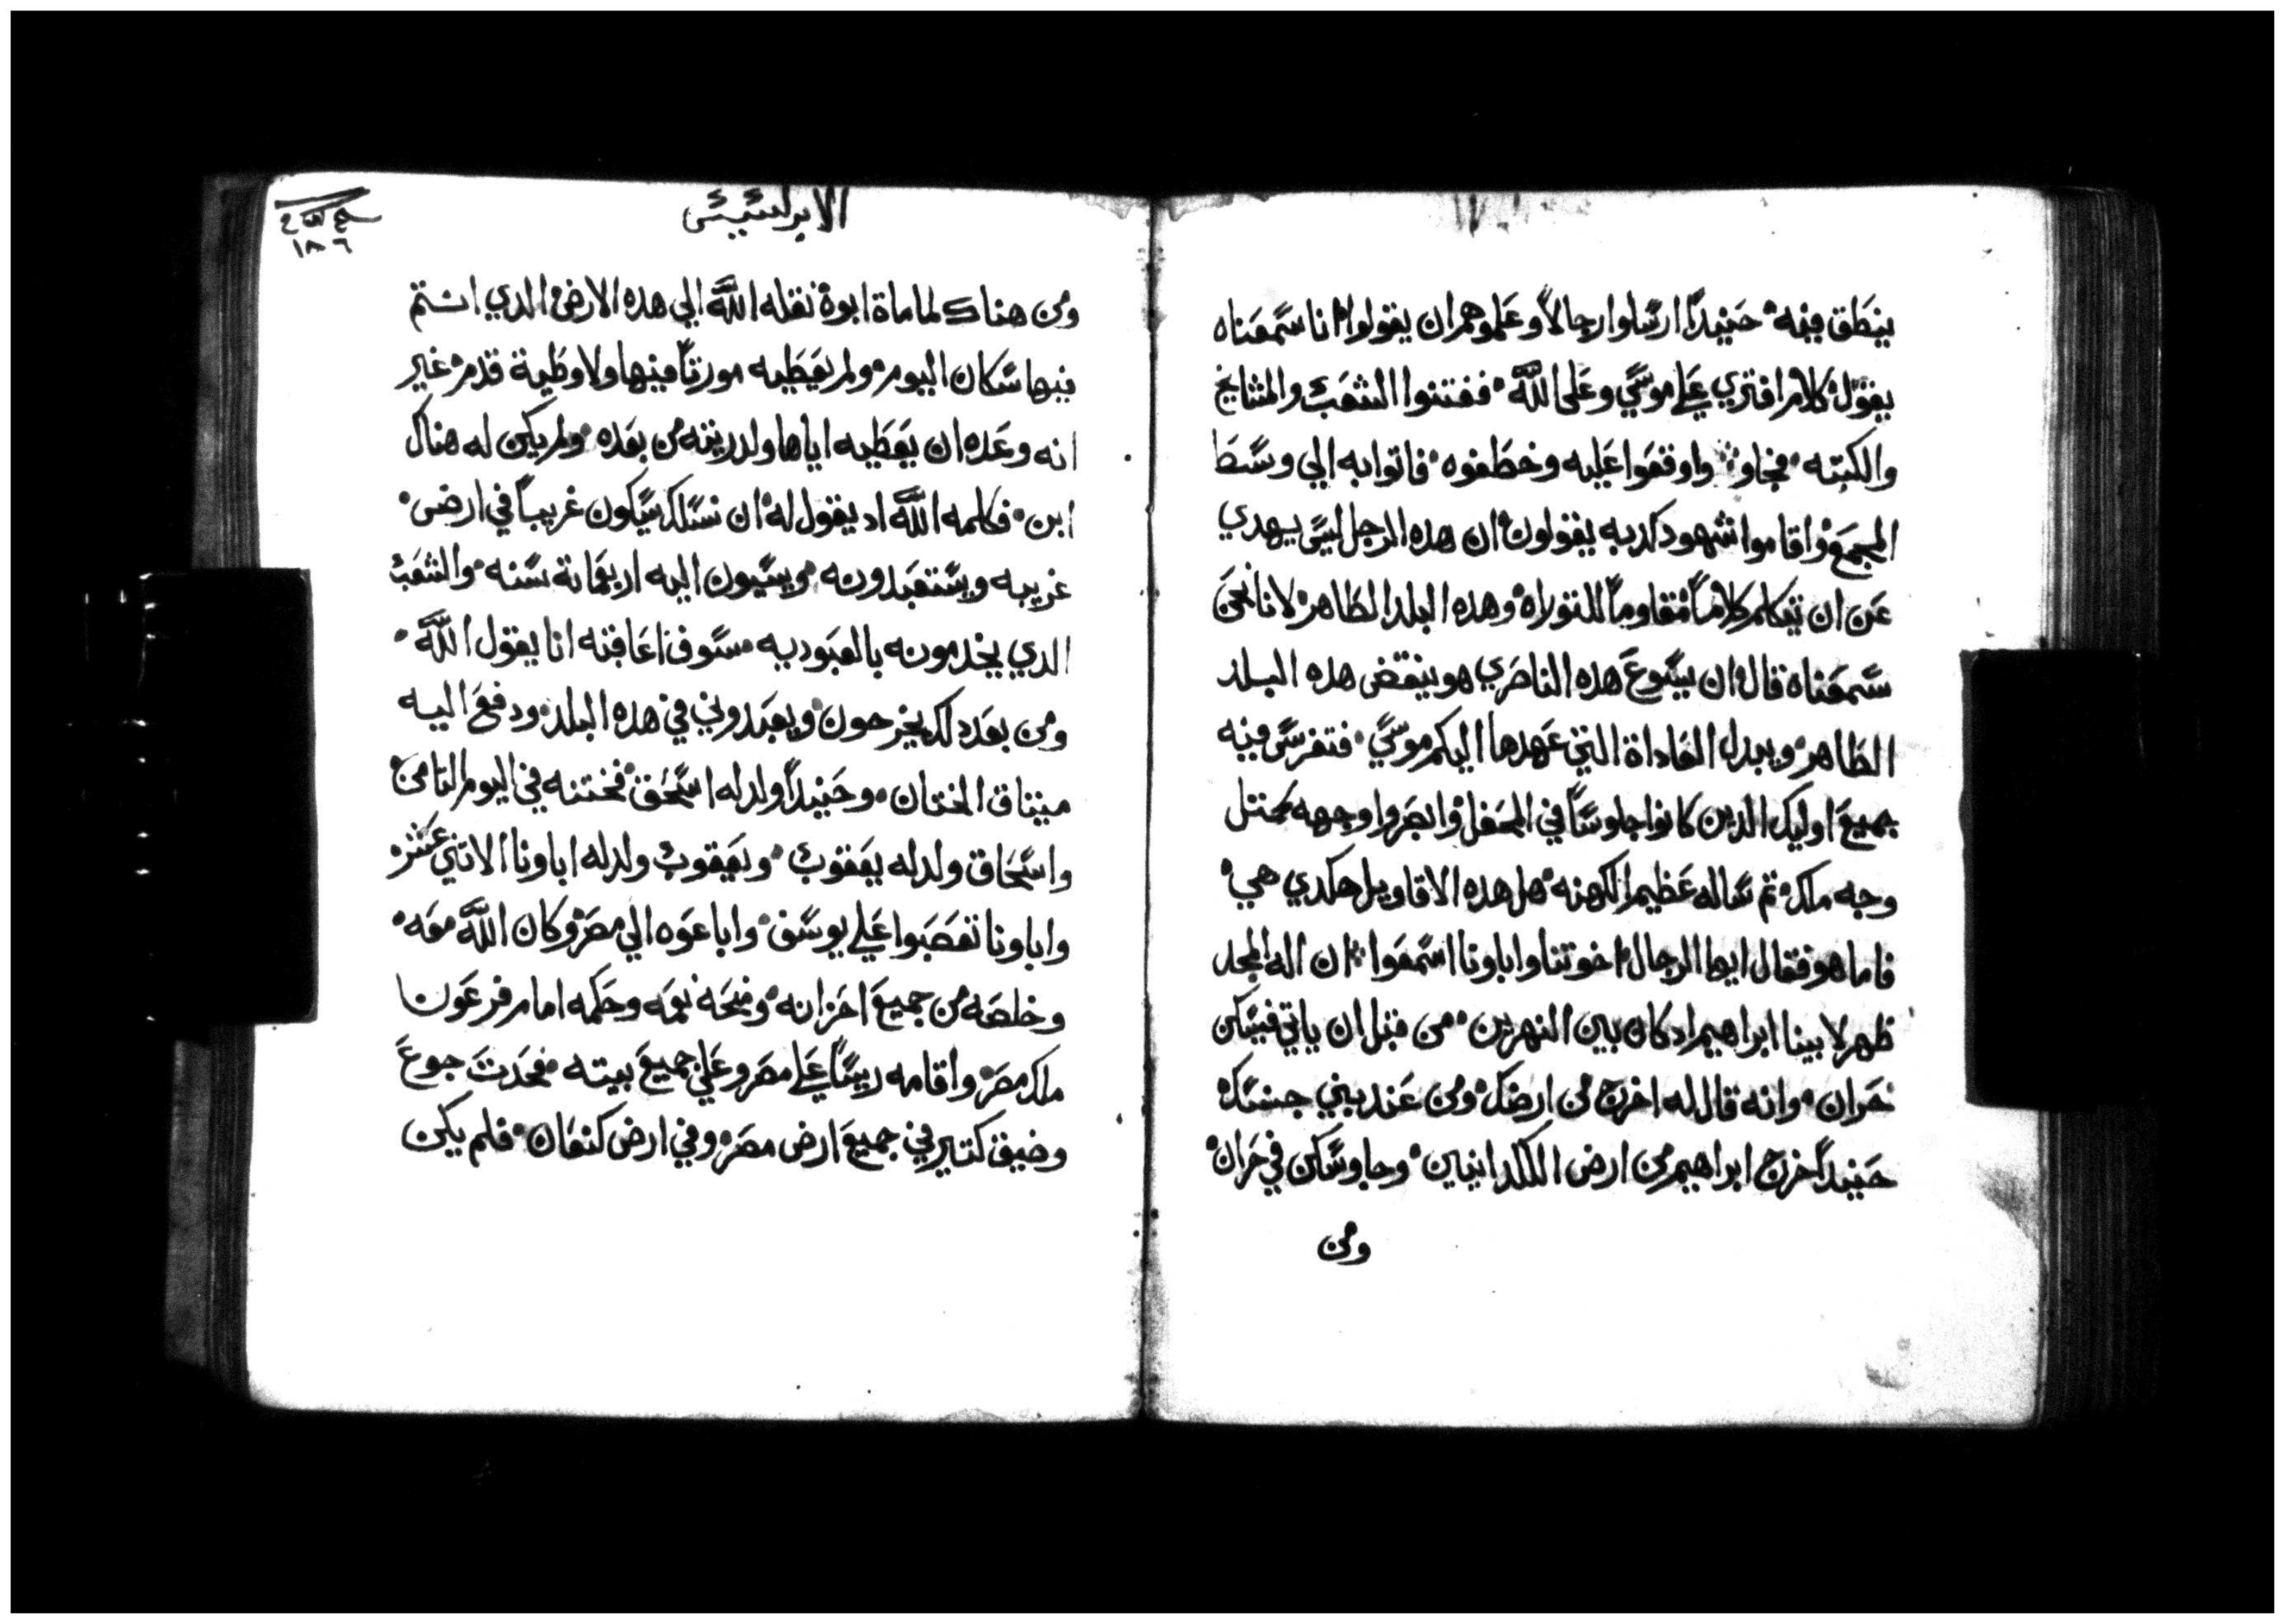 ينطق فيه حنيدًا ارسلوا رجالاً وعلموهم ان يقولوا انا سمعناه
يقول كلام افتري علي موسي وعلى الله ففتنوا الشعب والمشايخ
والكتبه فجاو واوقفوا عليه وخطفوه فاتوا به الي وسط
المجمع واقاموا شهود كدبه يقولون ان هده الرجل ليس يهدي
عن ان يتكلم كلاماً مقاوماً للتوراه وهده البلد الطاهر لانا نحن
سمعناه قال ان يسوع هده الناصري هو ينقض هده البلد
الطاهر ويبدل العاداة التي عهدها اليكم موسي فتفرس فيه
جميع اوليك الدين كانوا جلوساً في المحفل وابصروا وجهه كمتل
وجه ملاك تم ساله عظيم الكهنه هل هده الاقاويل هكدي هي
فاما هو فقال ايها الرجال اخوتنا واباونا اسمعوا ان اله المجد
ظهر لابينا ابراهيم اد كان بين النهرين من قبل ان ياتي فيسكن
حران وانه قال له اخرج من ارضك ومن عند بني جنسك
حنيدًا خرج ابراهيم من ارض الكلدانيين وجا وسكن في حران
ومن
الابركسيس
١٨٦
ومن هناك لما ماة ابوه نقله الله الي هده الارض الدي انتم
فيها سكان اليوم ولم يعطيه مورتاً فيها ولا وطية قدم غير
انه وعده ان يعطيه اياها ولدريته من بعده ولم يكن له هناك
ابن فكلمه الله اد يقول له ان نسلك سيكون غريباً في ارض
غريبه ويستعبدونه ويسيون اليه اربعماية سنه والشعب
الدي يخدمونه بالعبوديه سوف اعاقبه انا يقول الله
ومن بعد دلك يخرجون ويعبدوني في هده البلد ودفع اليه
ميتاق الختان وحنيدًا ولد له اسحق فختنه في اليوم التامن
واسحاق ولد له يعقوب ويعقوب ولد له اباونا الاتني عشر
واباونا تعصبوا علي يوسف واباعوه الي مصر وكان الله معه
وخلصه من جميع احزانه ومنحه نعمه وحكمه امام فرعون
ملك مصر واقامه ريساً علي مصر وعلي جميع بيته فحدت جوع
وضيق كتير في جميع ارض مصر وفي ارض كنعان فلم يكن